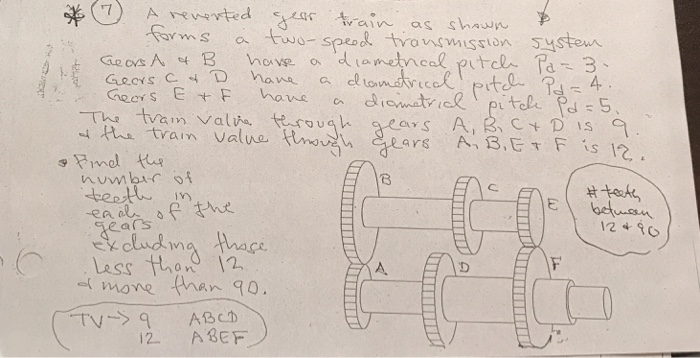 7 A reverted gear train as shown
forms a two-speed transmission system
Gears A & B have a diametrical pitch Pd = 3.
Geors C & D have a diametrical pitch Pd = 4.
Geors E + F have a diametrical pitch Pd = 5.
The train value through gears A, B, C + D is 9.
& the train value through gears A, B, E + F is 12.
Find the
number of
teeth in
each of the
gears
excluding those
less than 12
& more than 90.
TV -> 9 ABCD
12 ABEF
B
C
E
A
D
F
# teeth
between
12 & 90